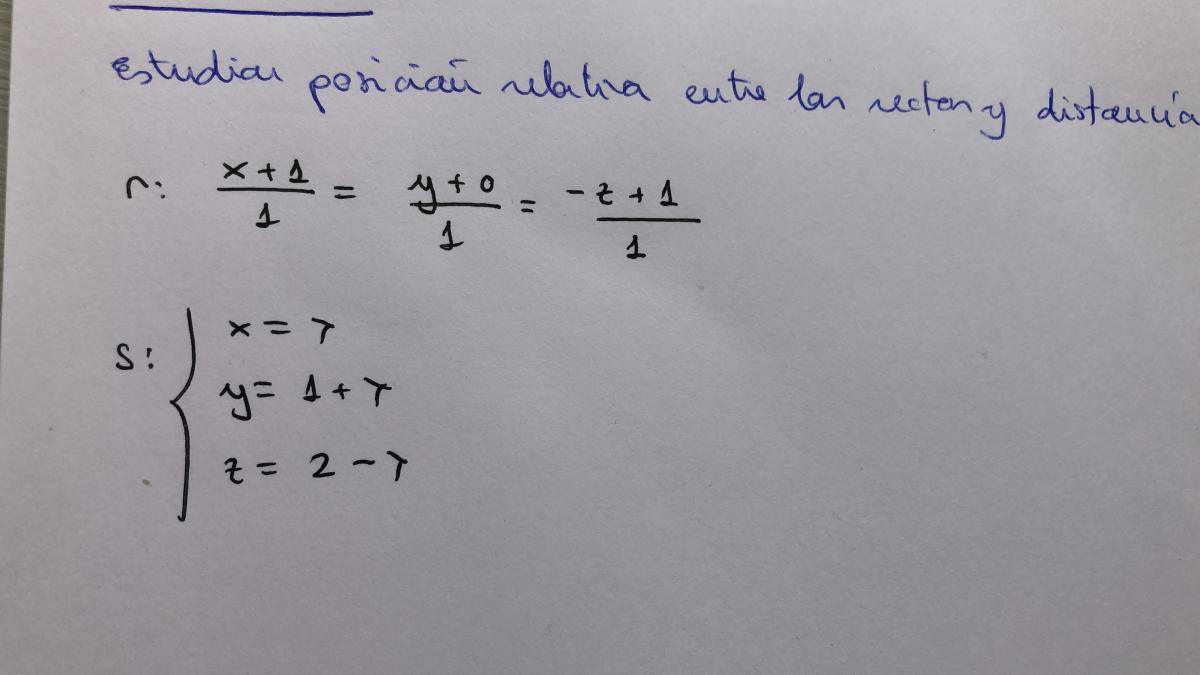 Estudiar posición relativa entre las rectas y distancia
r: x + 1 / 1 = y + 0 / 1 = -z + 1 / 1
s: { x = λ
y = 1 + λ
z = 2 - λ